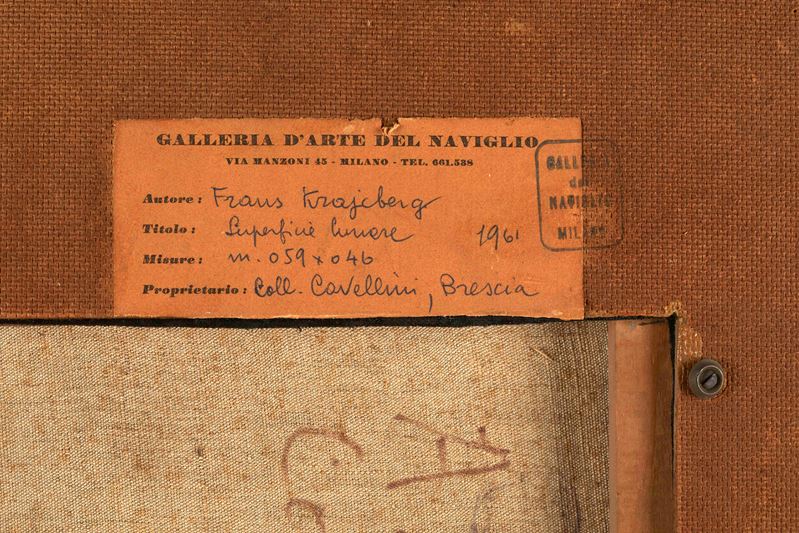 GALLERIA D'ARTE DEL NAVIGLIO
VIA MANZONI 45 - MILANO - TEL. 661.538
Autore: Frans Krajcberg
Titolo: Superficie lunare 1961
Misure: m. 059 x 046
Proprietario: Coll. Cavellini, Brescia
GALLERIA
del
NAVIGLIO
MILANO
A
C